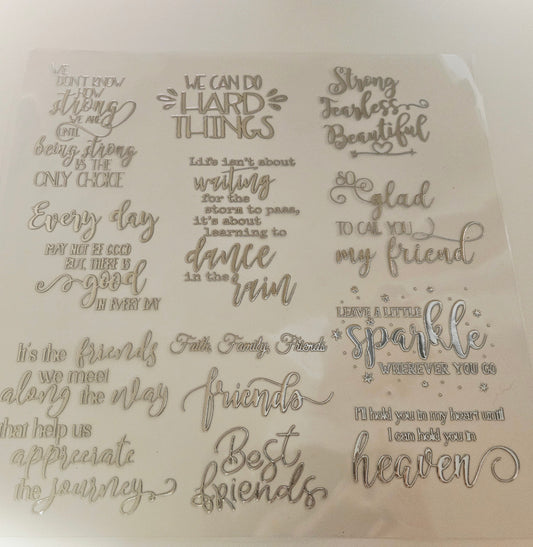 WE
DON'T KNOW
HOW
strong
WE ARE
UNTIL
being strong
IS THE
ONLY CHOICE
WE CAN DO
HARD
THINGS
Strong
Fearless
Beautiful
Life isn't about
waiting
for the
storm to pass,
it's about
learning to
dance
in the
rain
so
glad
TO CALL YOU
my friend
Every day
MAY NOT BE GOOD
BUT THERE IS
good
IN EVERY DAY
LEAVE A LITTLE
sparkle
WHEREVER YOU GO
It's the friends
we meet
along the way
that help us
appreciate
the journey
Faith, Family, Friends
friends
Best
friends
I'll hold you in my heart until
I can hold you in
heaven